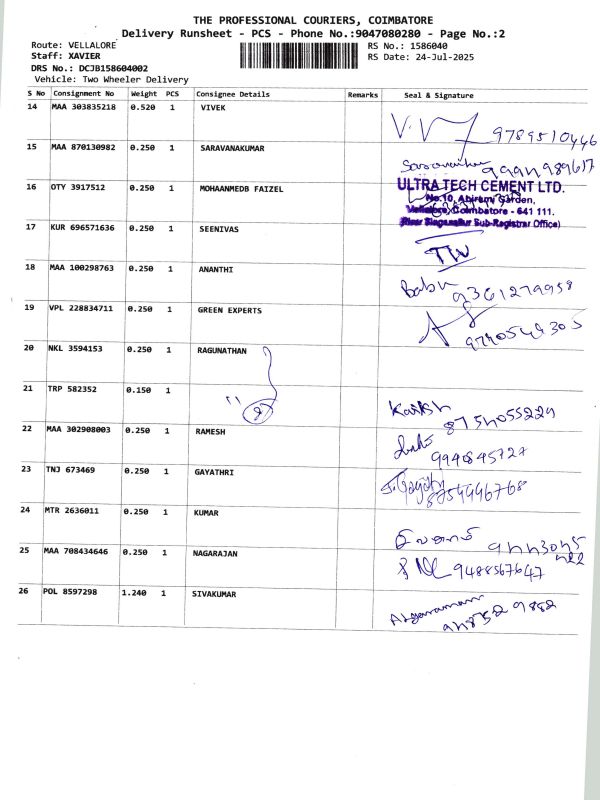 THE PROFESSIONAL COURIERS, COIMBATORE
Delivery Runsheet - PCS - Phone No.:9047080280 - Page No.:2
Route: VELLALORE RS No.: 1586040
Staff: XAVIER RS Date: 24-Jul-2025
DRS No.: DCJB158604002
Vehicle: Two Wheeler Delivery
S No Consignment No Weight PCS Consignee Details Remarks Seal & Signature
14 MAA 303835218 0.520 1 VIVEK
9789510446
15 MAA 870130982 0.250 1 SARAVANAKUMAR
16 OTY 3917512 0.250 1 MOHAANMEDB FAIZEL
ULTRA TECH CEMENT LTD.
No.10, Abirami Garden,
Vellalore, Coimbatore - 641 111.
(Near Singanallur Sub-Registrar Office)
17 KUR 696571636 0.250 1 SEENIVAS
TW
18 MAA 100298763 0.250 1 ANANTHI
Babu 9361279958
19 VPL 228834711 0.250 1 GREEN EXPERTS
9790549305
20 NKL 3594153 0.250 1 RAGUNATHAN
21 TRP 582352 0.150 1
22 MAA 302908003 0.250 1 RAMESH
23 TNJ 673469 0.250 1 GAYATHRI
24 MTR 2636011 0.250 1 KUMAR
25 MAA 708434646 0.250 1 NAGARAJAN
9488567647
26 POL 8597298 1.240 1 SIVAKUMAR